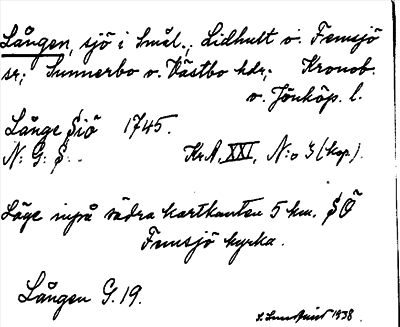 Lången, sjö i Smål.; Lidhult o. Femsjö
sr; Sunnerbo o. Västbo hdr; Kronob.
o. Jönköp. l.
Långe Siö 1745.
N: G: S.. KrA XXI, N:o 3 (kop).
Läge inpå södra kartkanten 5 km. SÖ
Femsjö kyrka.
Lången G. 19.
S. 1938.